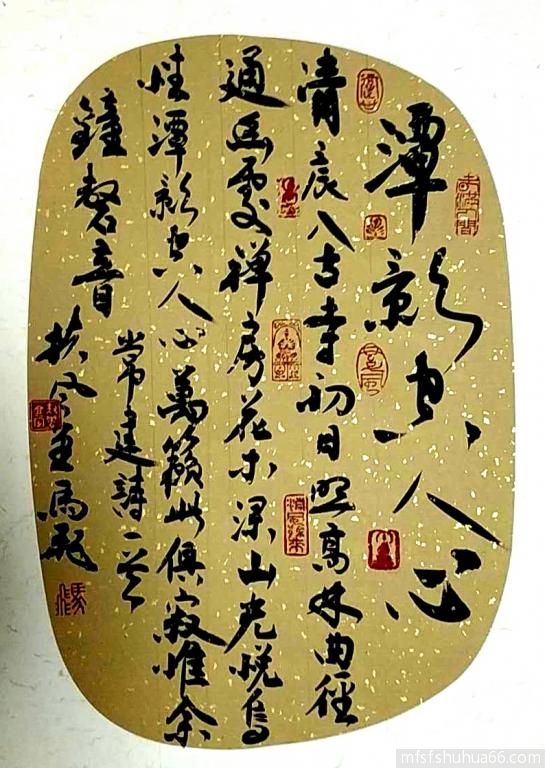 潭影空人心
清晨入古寺初日照高林曲徑
通幽處禅房花木深山光悦鳥
性潭影空人心萬籟此俱寂惟余
鐘磬音
常建詩一首
扶风 馬飛
mfsfshuhua66.com